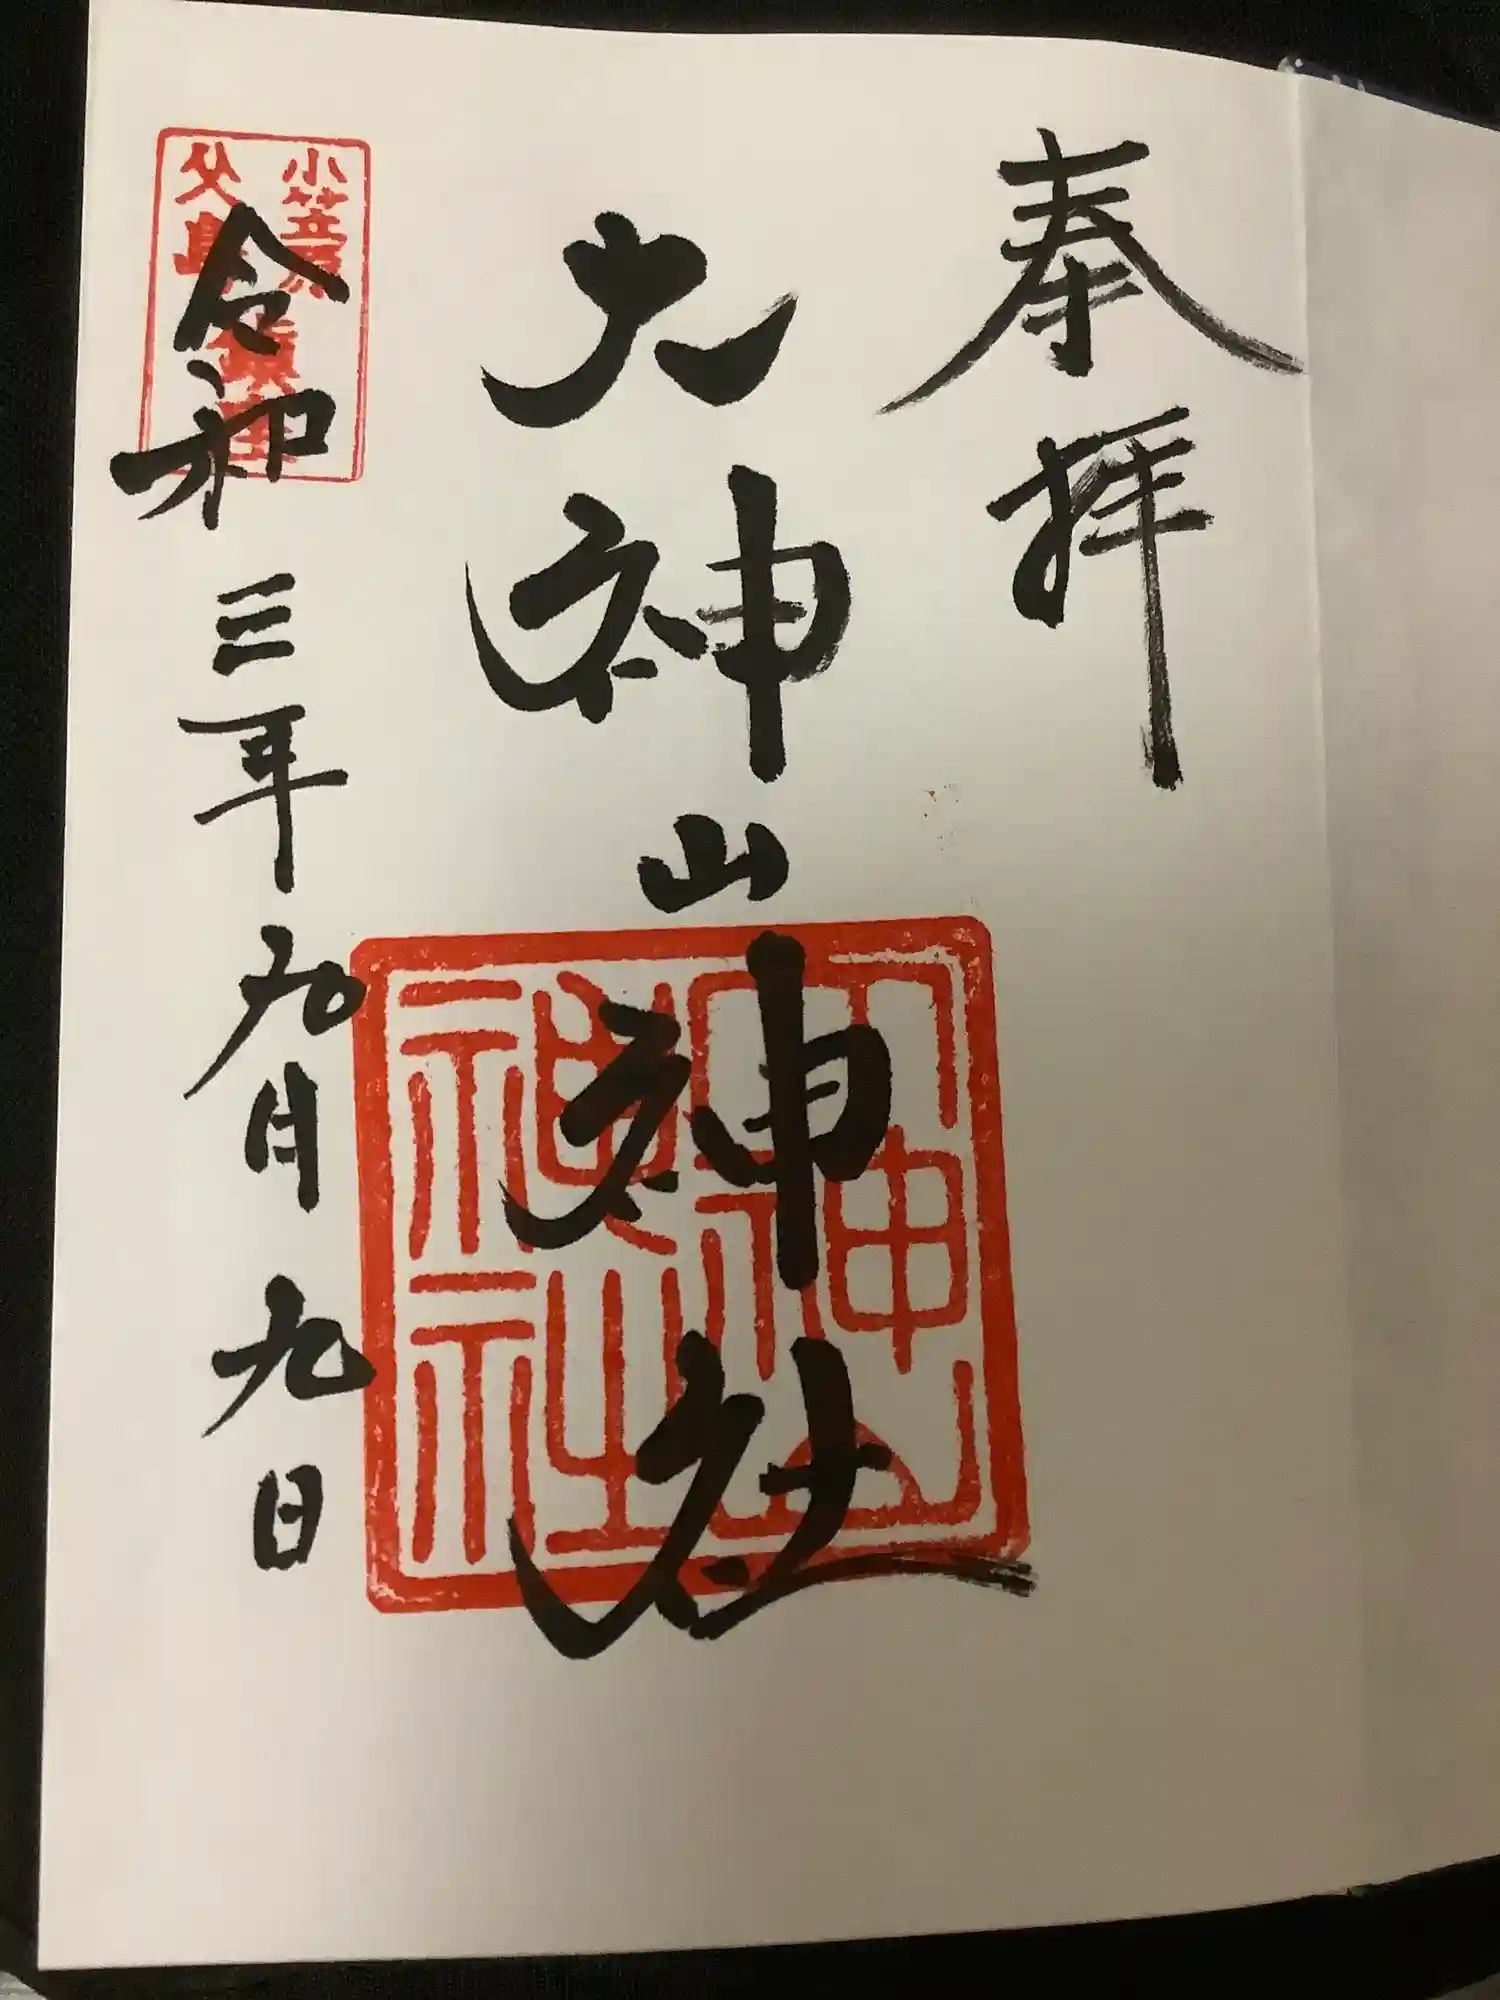 奉拝
大神山神社
大神山
神社
令和三年九月九日
小笠原
父島
鎮座